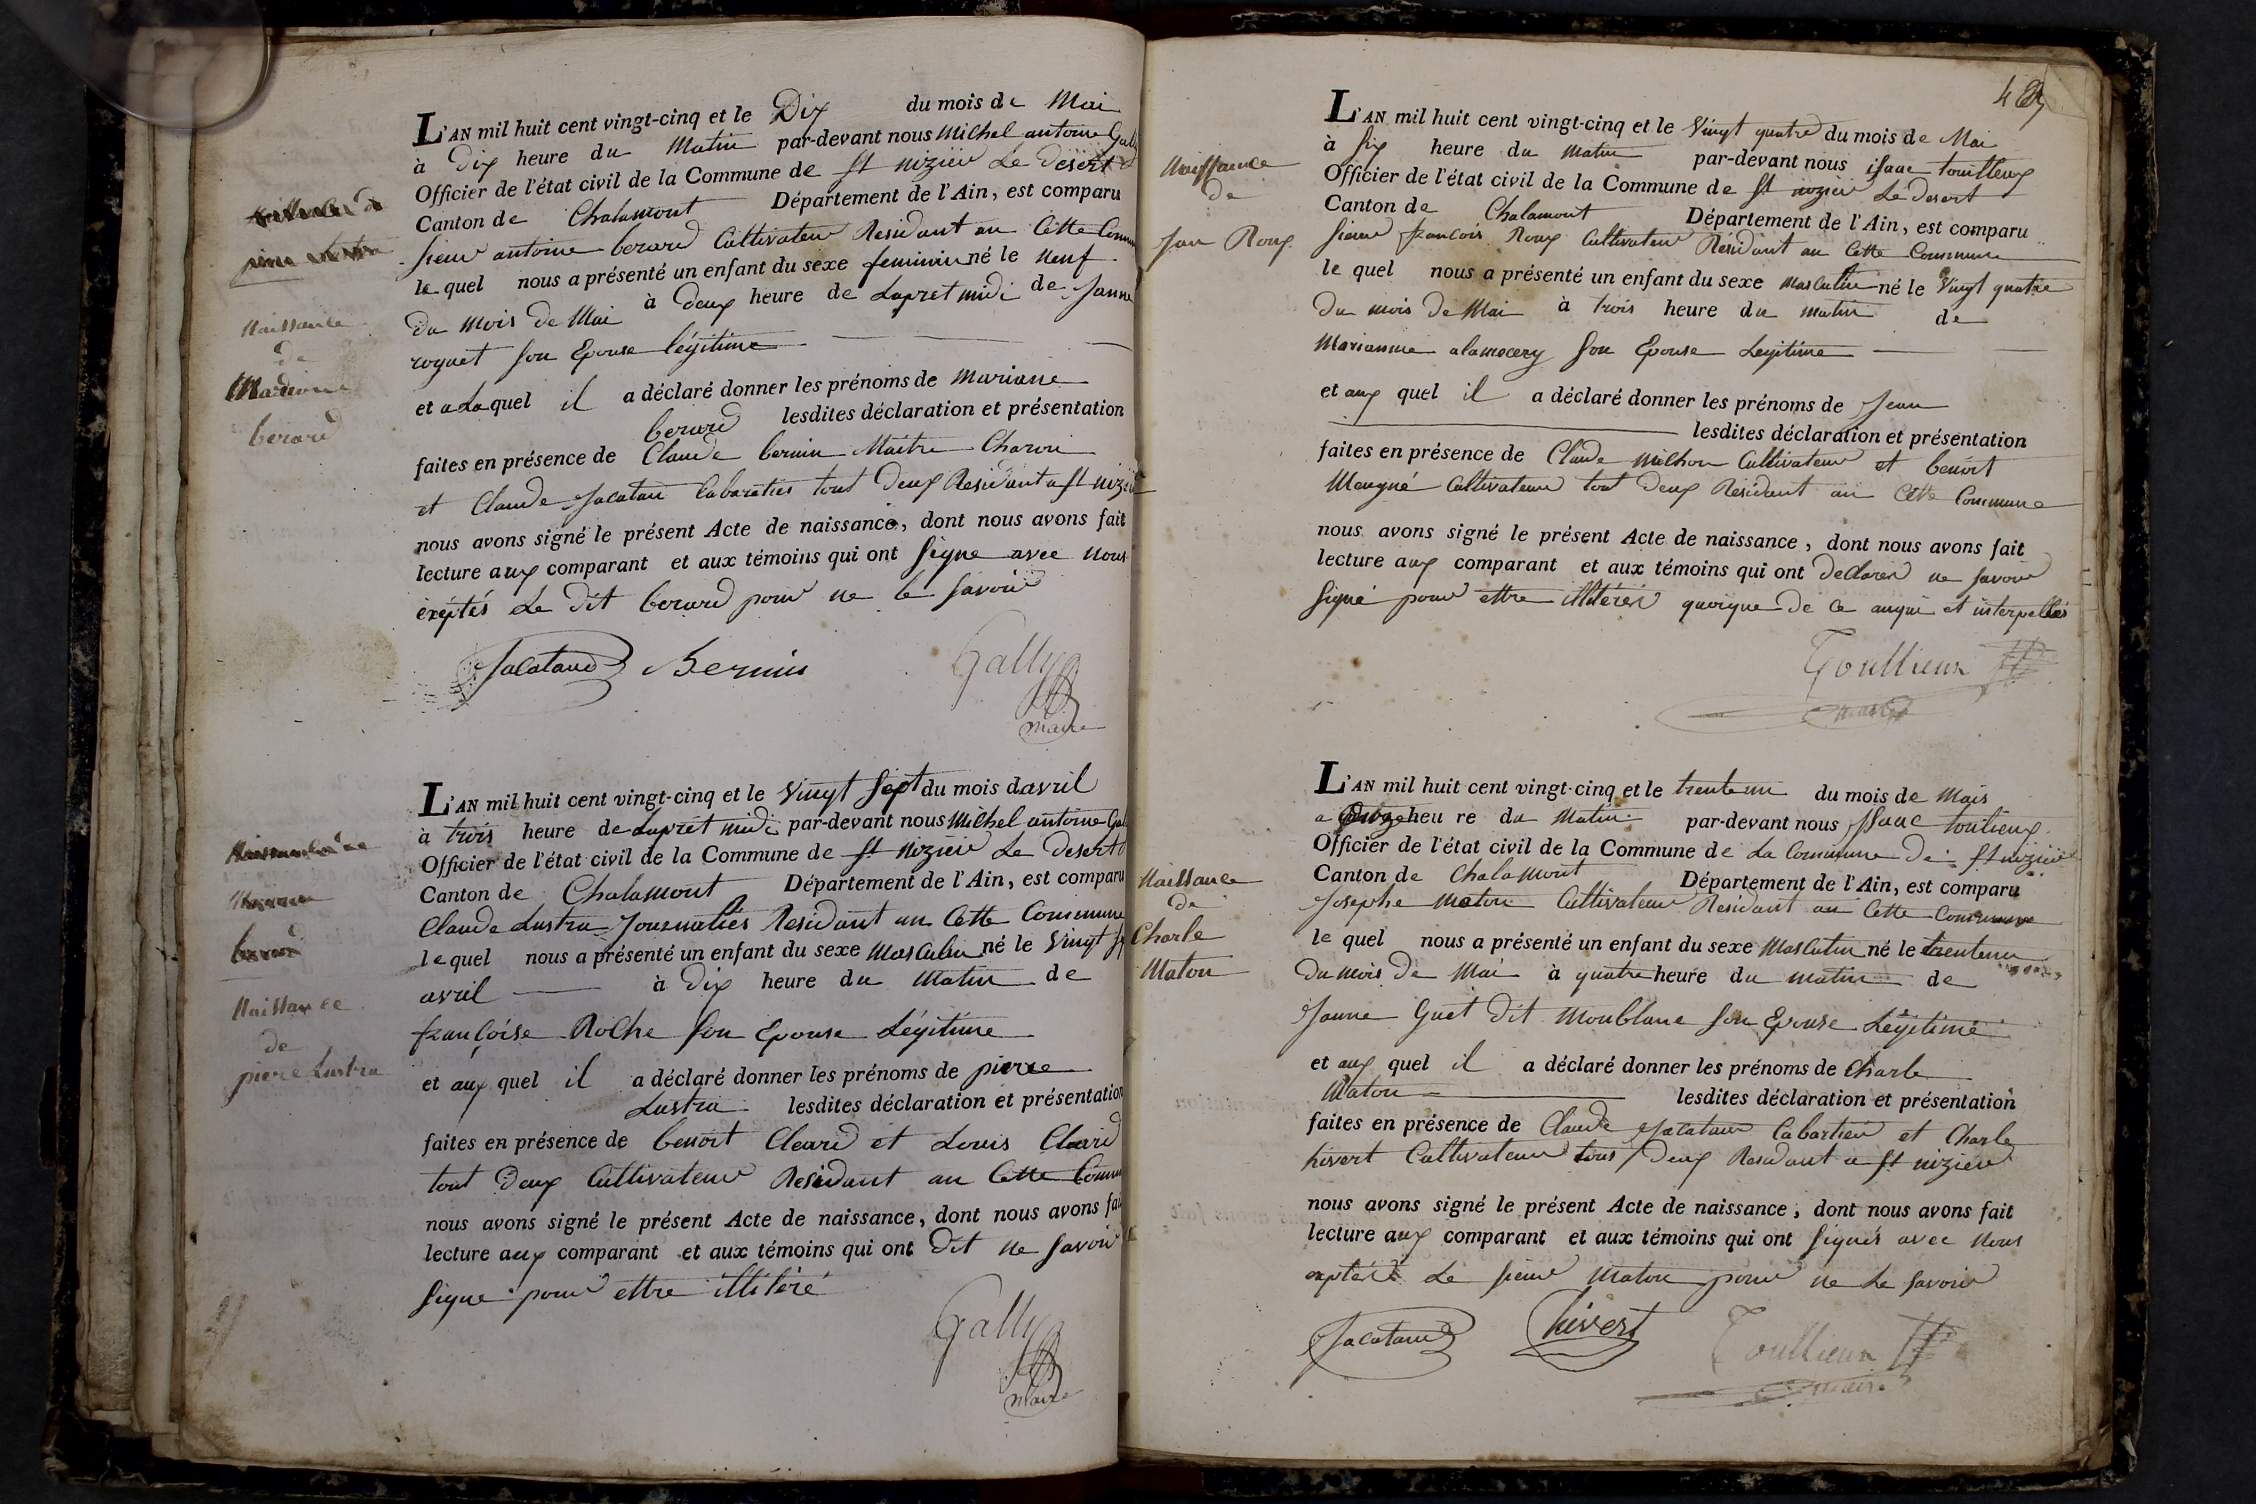 L'AN mil huit cent vingt-cinq et le Dix du mois de Mai
à Dix heure du Matin par-devant nous Michel antoine Gally
Officier de l'état civil de la Commune de St nizier Le desert
Canton de Chalamont Département de l'Ain, est comparu
sieur antoine berard Cultivateur Residant an Cette Commune
le quel nous a présenté un enfant du sexe feminin né le neuf
du mois de Mai à deux heure de Lapret midi de Janne
roguet son Epouse légitime
et a La quel il a déclaré donner les prénoms de Mariane
berard lesdites déclaration et présentation
faites en présence de Claude bernin Maitre Charon
et Claude Jacataud Cabaretier tout deux Residant a St nizier
nous avons signé le présent Acte de naissance, dont nous avons fait
lecture aux comparant et aux témoins qui ont signe avec nous
exéptés Le dit berard pour ne le savoir
Jacataud Bernin Gally
maire
Naissance
de
Mariane
berard
L'AN mil huit cent vingt-cinq et le Vingt Sept du mois davril
à trois heure de Lapret midi par-devant nous Michel antoine Gally
Officier de l'état civil de la Commune de St nizier Le desert
Canton de Chalamont Département de l'Ain, est comparu
Claude Lustra Journalier Residant an Cette Commune
le quel nous a présenté un enfant du sexe Masculin né le Vingt
avril à Dix heure du Matin de
françoise Roche son Epouse Légitime
et aux quel il a déclaré donner les prénoms de pierre
Lustra lesdites déclaration et présentation
faites en présence de benoit Cleard et Louis Cleard
tout deux Cultivateur Residant an Cette Commune
nous avons signé le présent Acte de naissance, dont nous avons fait
lecture aux comparant et aux témoins qui ont dit ne savoir
signe pour ettre illitéré
Gally
maire
berard
Naissance
de
piere Lustra
48
L'AN mil huit cent vingt-cinq et le Vingt quatre du mois de Mai
à six heure du matin par-devant nous isaac touilleux
Officier de l'état civil de la Commune de St nizier Le desert
Canton de Chalamont Département de l'Ain, est comparu
sieur francois Roux Cultivateur Résidant an Cette Commune
le quel nous a présenté un enfant du sexe masculin né le Vingt quatre
du mois de Mai à trois heure du matin de
Marianne alamercery son Epouse Legitime
et aux quel il a déclaré donner les prénoms de Jean
lesdites déclaration et présentation
faites en présence de Claude Milhon Cultivateur et benoit
Mengné Cultivateur tout deux Résidant an Cette Commune
nous avons signé le présent Acte de naissance, dont nous avons fait
lecture aux comparant et aux témoins qui ont declarer ne savoir
signé pour ettre illitérer quoique de ce anqui et interpellés
Toullieux
maire
Naissance
de
Jean Roux
L'AN mil huit cent vingt-cinq et le trente un du mois de Mais
a heure du Matin par-devant nous Isaac toulieux
Officier de l'état civil de la Commune de La Commune De St nizier
Canton de Chalamont Département de l'Ain, est comparu
Josephe Maton Cultivateur Residant an Cette Commune
le quel nous a présenté un enfant du sexe Masculin né le trente un
du mois de Mai à quatre heure du matin de
Janne Guet dit Monblanc son Epouse Légitime
et aux quel il a déclaré donner les prénoms de Charle
Maton lesdites déclaration et présentation
faites en présence de Claude Jacataud Cabartier et Charle
hivert Cultivateur tous deux Residant a St nizier
nous avons signé le présent Acte de naissance, dont nous avons fait
lecture aux comparant et aux témoins qui ont signés avec nous
exptéés Le sieur Maton pour ne Le savoir
Jacataud hivert Toullieux
maire
Naissance
de
Charle
Maton